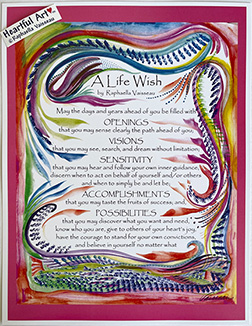 Heartful Art
© Raphaella Vaisseau
A Life Wish
by Raphaella Vaisseau
May the days and years ahead of you be filled with
OPENINGS
that you may sense clearly the path ahead of you,
VISIONS
that you may see, search, and dream without limitation,
SENSITIVITY
that you may hear and follow your own inner guidance,
discern when to act on behalf of yourself and/or others
and when to simply be and let be,
ACCOMPLISHMENTS
that you may taste the fruits of success; and,
POSSIBILITIES
that you may discover what you want and need,
know who you are, give to others of your heart's joy,
have the courage to stand for your own convictions,
and believe in yourself no matter what